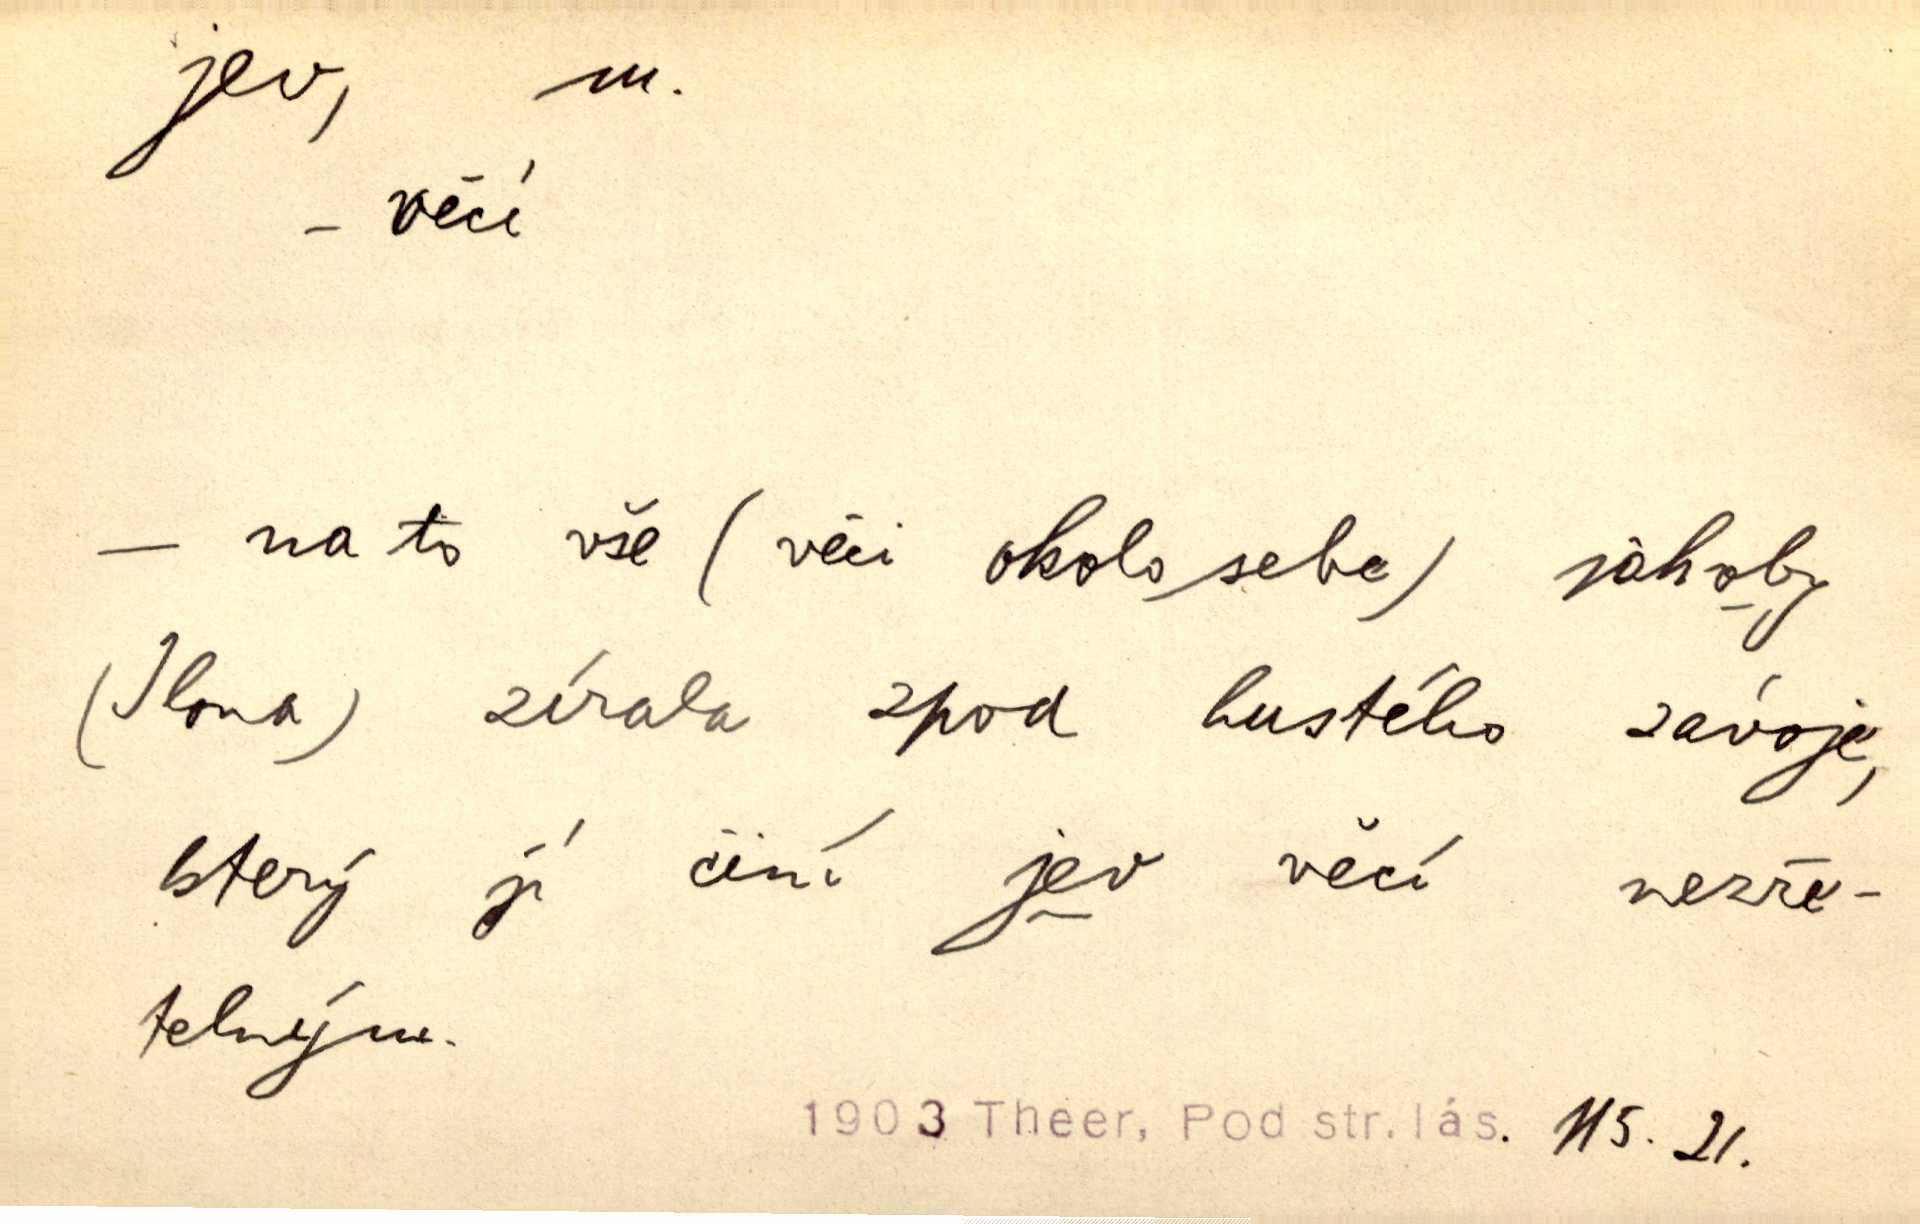 jev, m.
- věcí
— na to vše (věci okolo sebe) jakoby
(Ilona) zírala zpod hustého závoje,
který jí činí jev věcí nezře-
telným.
1903 Theer, Pod str. lás. 115. 21.